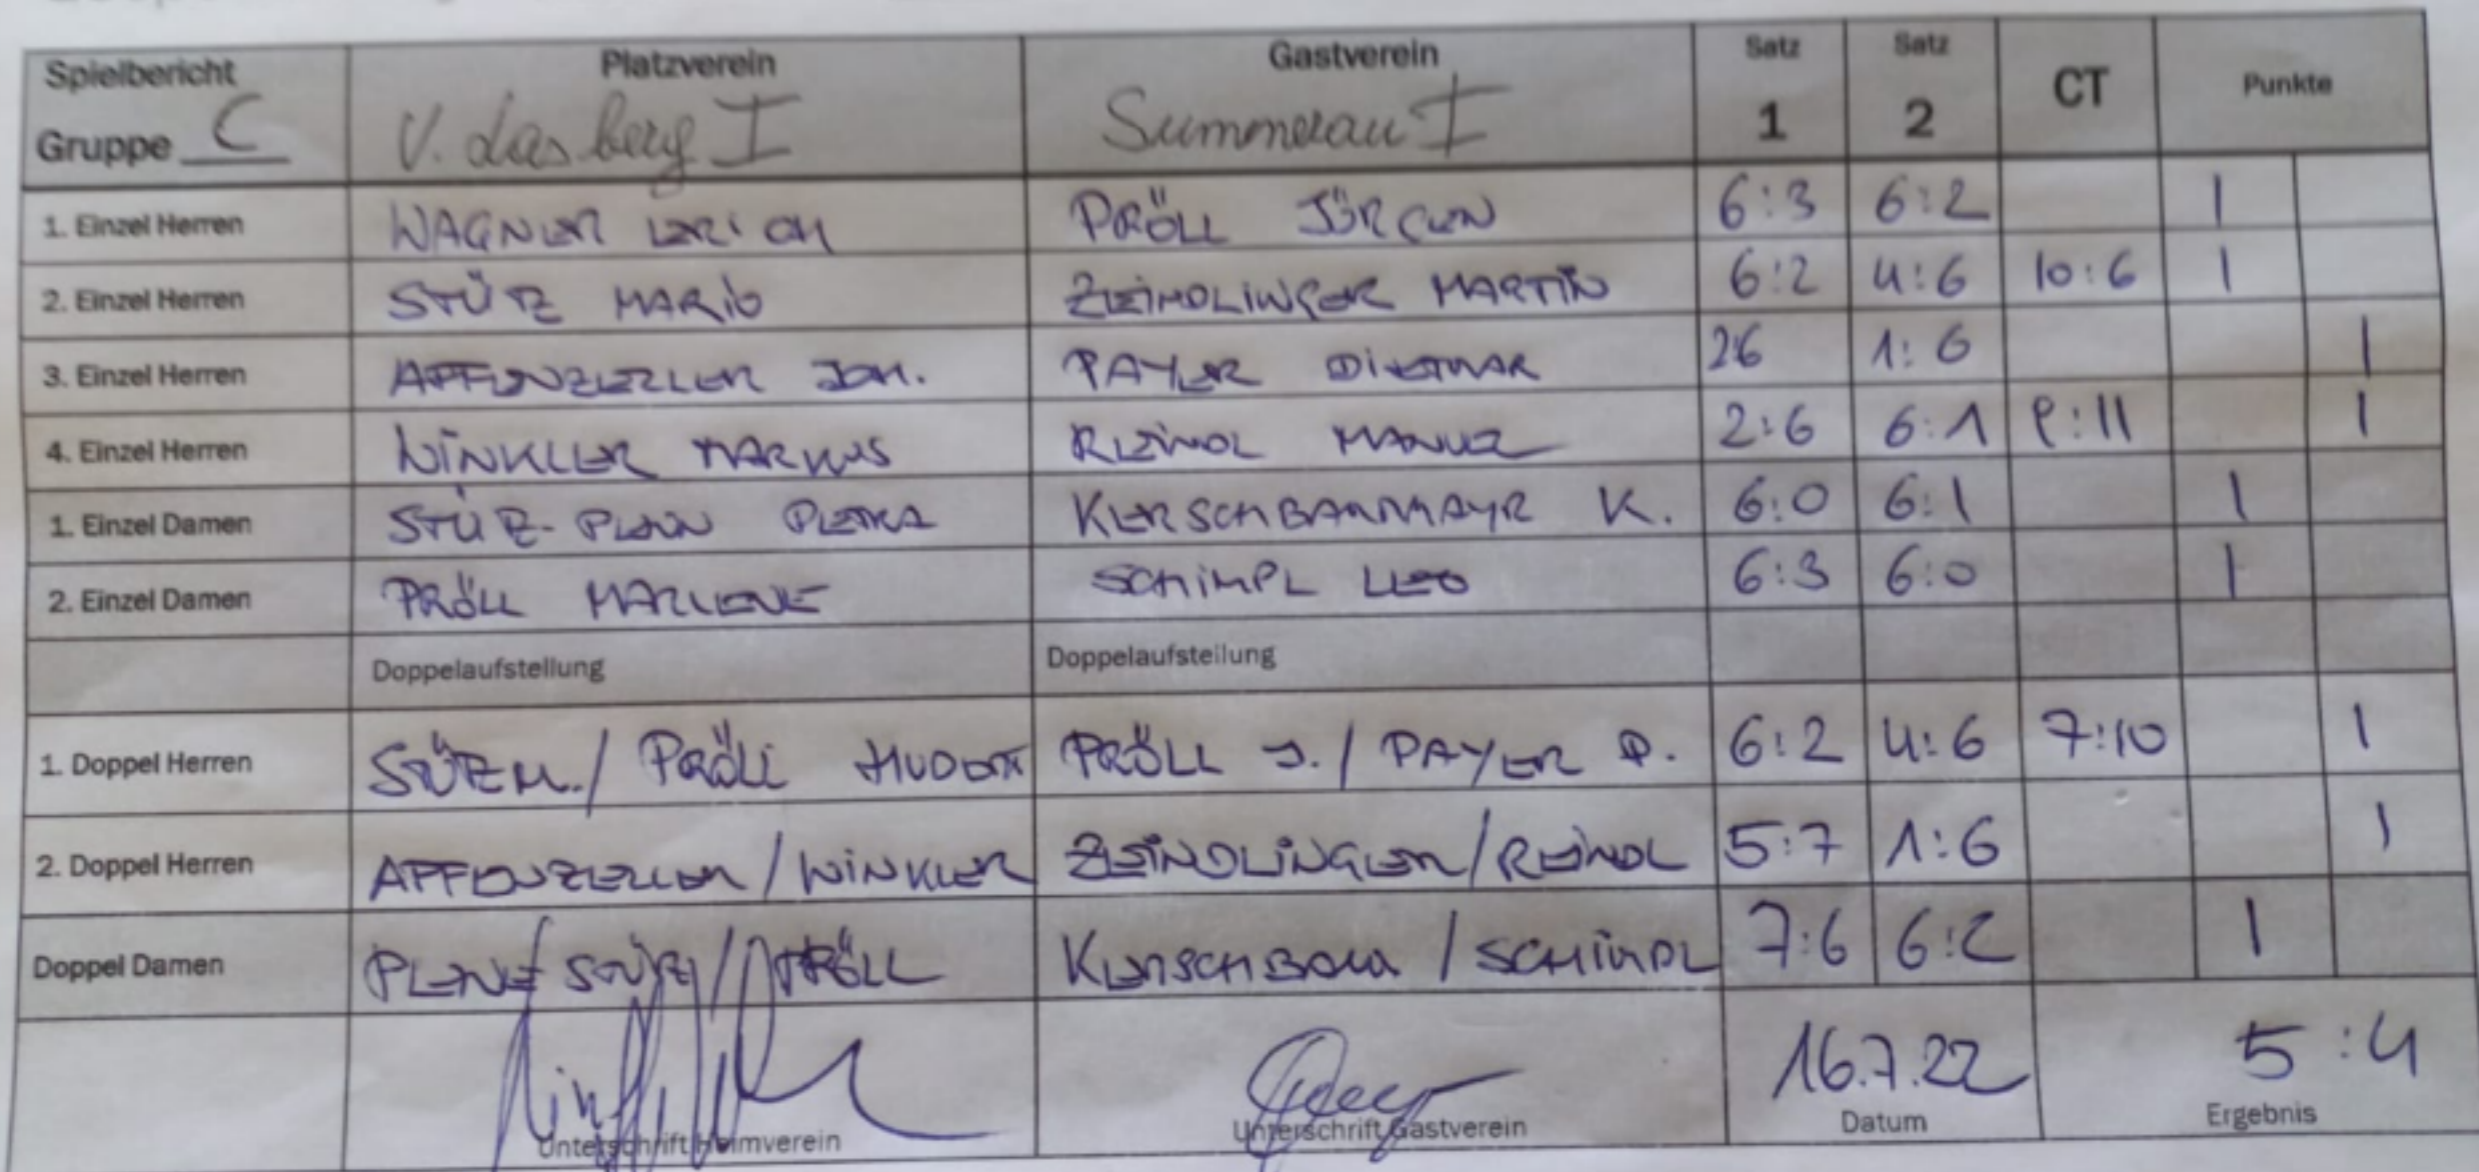 Spielbericht Platzverein Gastverein Satz Satz CT Punkte
Gruppe C V. dasberg I Summerau I 1 2
1. Einzel Herren WAGNER ERICH PRÖLL JÜRGEN 6:3 6:2 1
2. Einzel Herren STÜTZ MARIO ZEINDLINGER MARTIN 6:2 4:6 10:6 1
3. Einzel Herren AFFENZELLER JOH. PAYER DIETMAR 26 1:6 1
4. Einzel Herren WINKLER MARKUS REINDL MANUEL 2:6 6:1 9:11 1
1. Einzel Damen STÜTZ- PETRA KERSCHBAUMMAYR K. 6:0 6:1 1
2. Einzel Damen PRÖLL MARLENE SCHIMPL LEO 6:3 6:0 1
Doppelaufstellung Doppelaufstellung
1. Doppel Herren STÜTZ M. / PRÖLL PRÖLL J. / PAYER D. 6:2 4:6 7:10 1
2. Doppel Herren AFFENZELLER / WINKLER ZEINDLINGER / REINDL 5:7 1:6 1
Doppel Damen STÜTZ / PRÖLL KERSCHBAUM / SCHIMPL 7:6 6:2 1
16.7.22 5:4
Unterschrift Heimverein Unterschrift Gastverein Datum Ergebnis